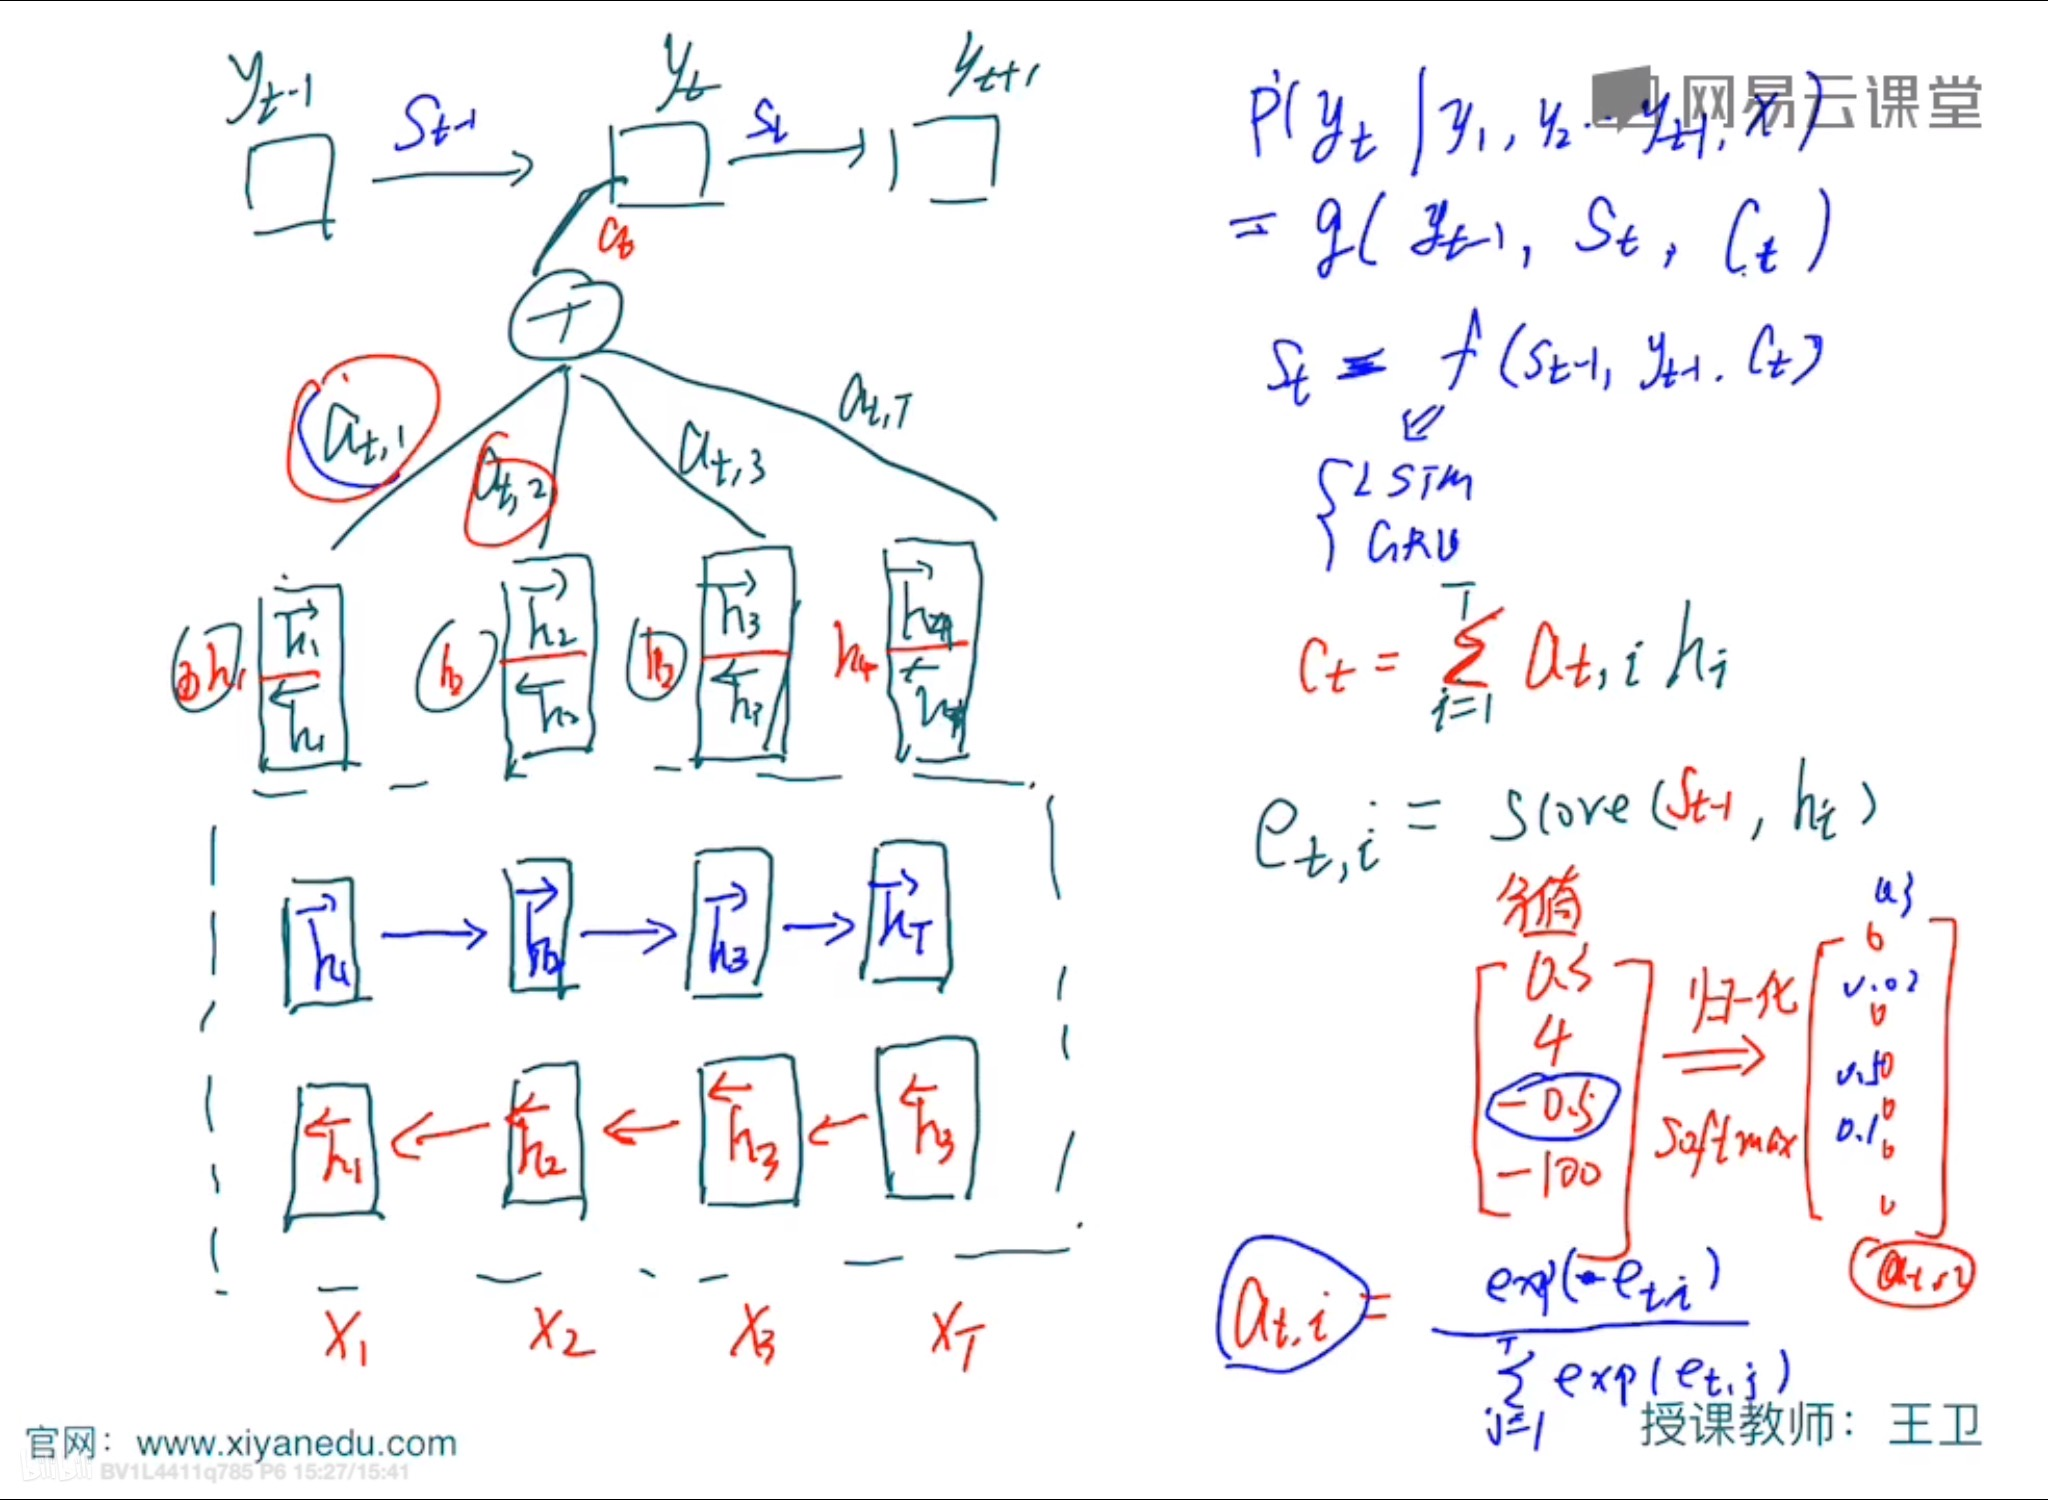 y_{t-1} S_{t-1} y_t S_t y_{t+1}
C_t
+
a_{t,1} a_{t,2} a_{t,3} a_{t,T}
h_1 \overrightarrow{h_1} \overrightarrow{h_2} \overrightarrow{h_3} h_4
\overleftarrow{h_1} \overleftarrow{h_2} \overleftarrow{h_3}
\overrightarrow{h_1} \overrightarrow{h_2} \overrightarrow{h_3} \overrightarrow{h_T}
\overleftarrow{h_1} \overleftarrow{h_2} \overleftarrow{h_3} \overleftarrow{h_3}
X_1 X_2 X_3 X_T
网易云课堂
P(y_t | y_1, y_2 ... y_{t-1}, x)
= g(y_{t-1}, S_t, C_t)
S_t = f(S_{t-1}, y_{t-1}, C_t)
LSTM
GRU
C_t = \sum_{i=1}^{T} a_{t,i} h_i
e_{t,i} = score(S_{t-1}, h_i)
分值
0.5
4
-0.5
-100
归一化
softmax
0.1
a_{t,i} = \frac{exp(e_{t,i})}{\sum_{j=1}^{T} exp(e_{t,j})}
授课教师：王卫
官网：www.xiyanedu.com
bilibili BV1L4411q785 P6 15:27/15:41